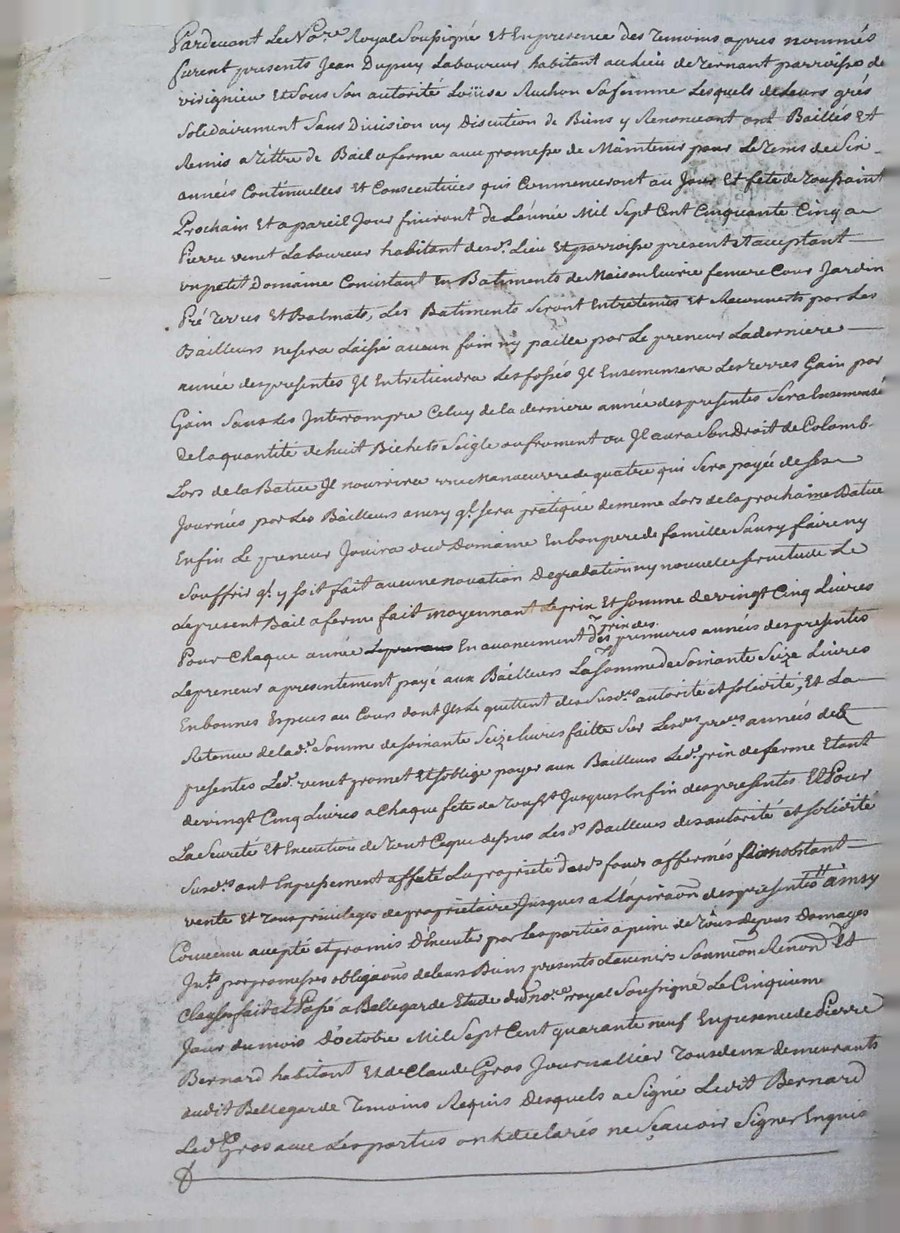 Pardevant Le No.re Royal Soussigné Et En presence des Temoins apres nommés
furent presents Jean Dupuy Laboureur habitant au Lieu de Ternant parroisse de
virignieu Et Sous Son autorité Loüise Ruchon Sa femme Lesquels de Leurs grés
Solidairement Sans Division ny Discution de Biens y Renoncant ont Baillés Et
Remis a Tittre de Bail a ferme avec promesse de Maintenir pour Le Tems de Six
années Continuelles Et Consecutives qui Commenceront au Jour Et fete de Toussaint
Prochain Et a pareil Jour finiront de L'année Mil Sept Cent Cinquante Cinq a
Pierre venet Laboureur habitant desd. Lieu Et parroisse present et aceptant
un petit Domaine Consistant En Batiments de Maison Ecurie feniere Cour Jardin
Pré Terres Et Balmats, Les Batiments Seront Entretenus Et Recouverts par Les
Bailleurs ne Sera Laissé aucun foin ny paille par Le preneur La derniere
année des presentes Il Entretiendra Les fossés Il Ensemensera Les Terres Gain par
Gain Sans Les Interrompre Celuy de la derniere année des presentes Sera Ensemensé
de la quantité de huit Bichets Seigle ou froment ou Il aura Son Droit de Colomb.
Lors de la Batue Il nourrira un Manoeuvre de quatre qui Sera payée de Ses
Journées par Les Bailleurs ainsy q.l sera pratiqué de meme Lors de la prochaine Batue
Enfin Le preneur Jouira dud Domaine En bon pere de famille Sans y faire ny
Souffrir q.l y soit fait aucune novation Degradation ny nouvelle servitude Le
Le present Bail a ferme fait moyennant Le prix Et Somme de vingt Cinq Livres
Pour Chaque année En avancement du prix des premieres années des presentes
Le preneur a presentement payé aux Bailleurs La Somme de Soixante Seize Livres
En bonnes Especes au Cours dont Ils Le quittent des Susd.es autorité et solidité; Et La
Retenue de lad. Somme de soixante Seize Livres faitte Sur Lesd.es pre.es années des
presentes Led. venet promet Et s'oblige payer aux Bailleurs Led. prix de ferme Etant
de vingt Cinq Livres a Chaque fete de Touss.t Jusques En fin des presentes Et Pour
La Seureté Et Execution de Tout Ce que dessus Les d.s Bailleurs des autorité et solidité
Susd.es ont Expressement affecté La proprieté desd.s fonds affermés Nonobstant
vente Et Tous privileges de proprietaire Jusques a L'Expiraõn des presentes ainsy
Convenu acepté et promis D'Executer par Les parties a peine de Tous depens Domages
Int.s par promesses obligaõns de leurs Biens presents et avenirs Soumiõn Renonc.õn Et
Clauses fait Et Passé a Bellegarde Etude du No.re royal Soussigné Le Cinquieme
Jour du mois D'octobre Mil Sept Cent quarante neuf En presence de Pierre
Bernard habitant Et de Claude Gros Journallier Tous deux demeurants
audit Bellegarde Temoins Requis Desquels a Signé Ledit Bernard
Led. Gros avec Les parties ont declarés ne Sçavoir Signer Enquis